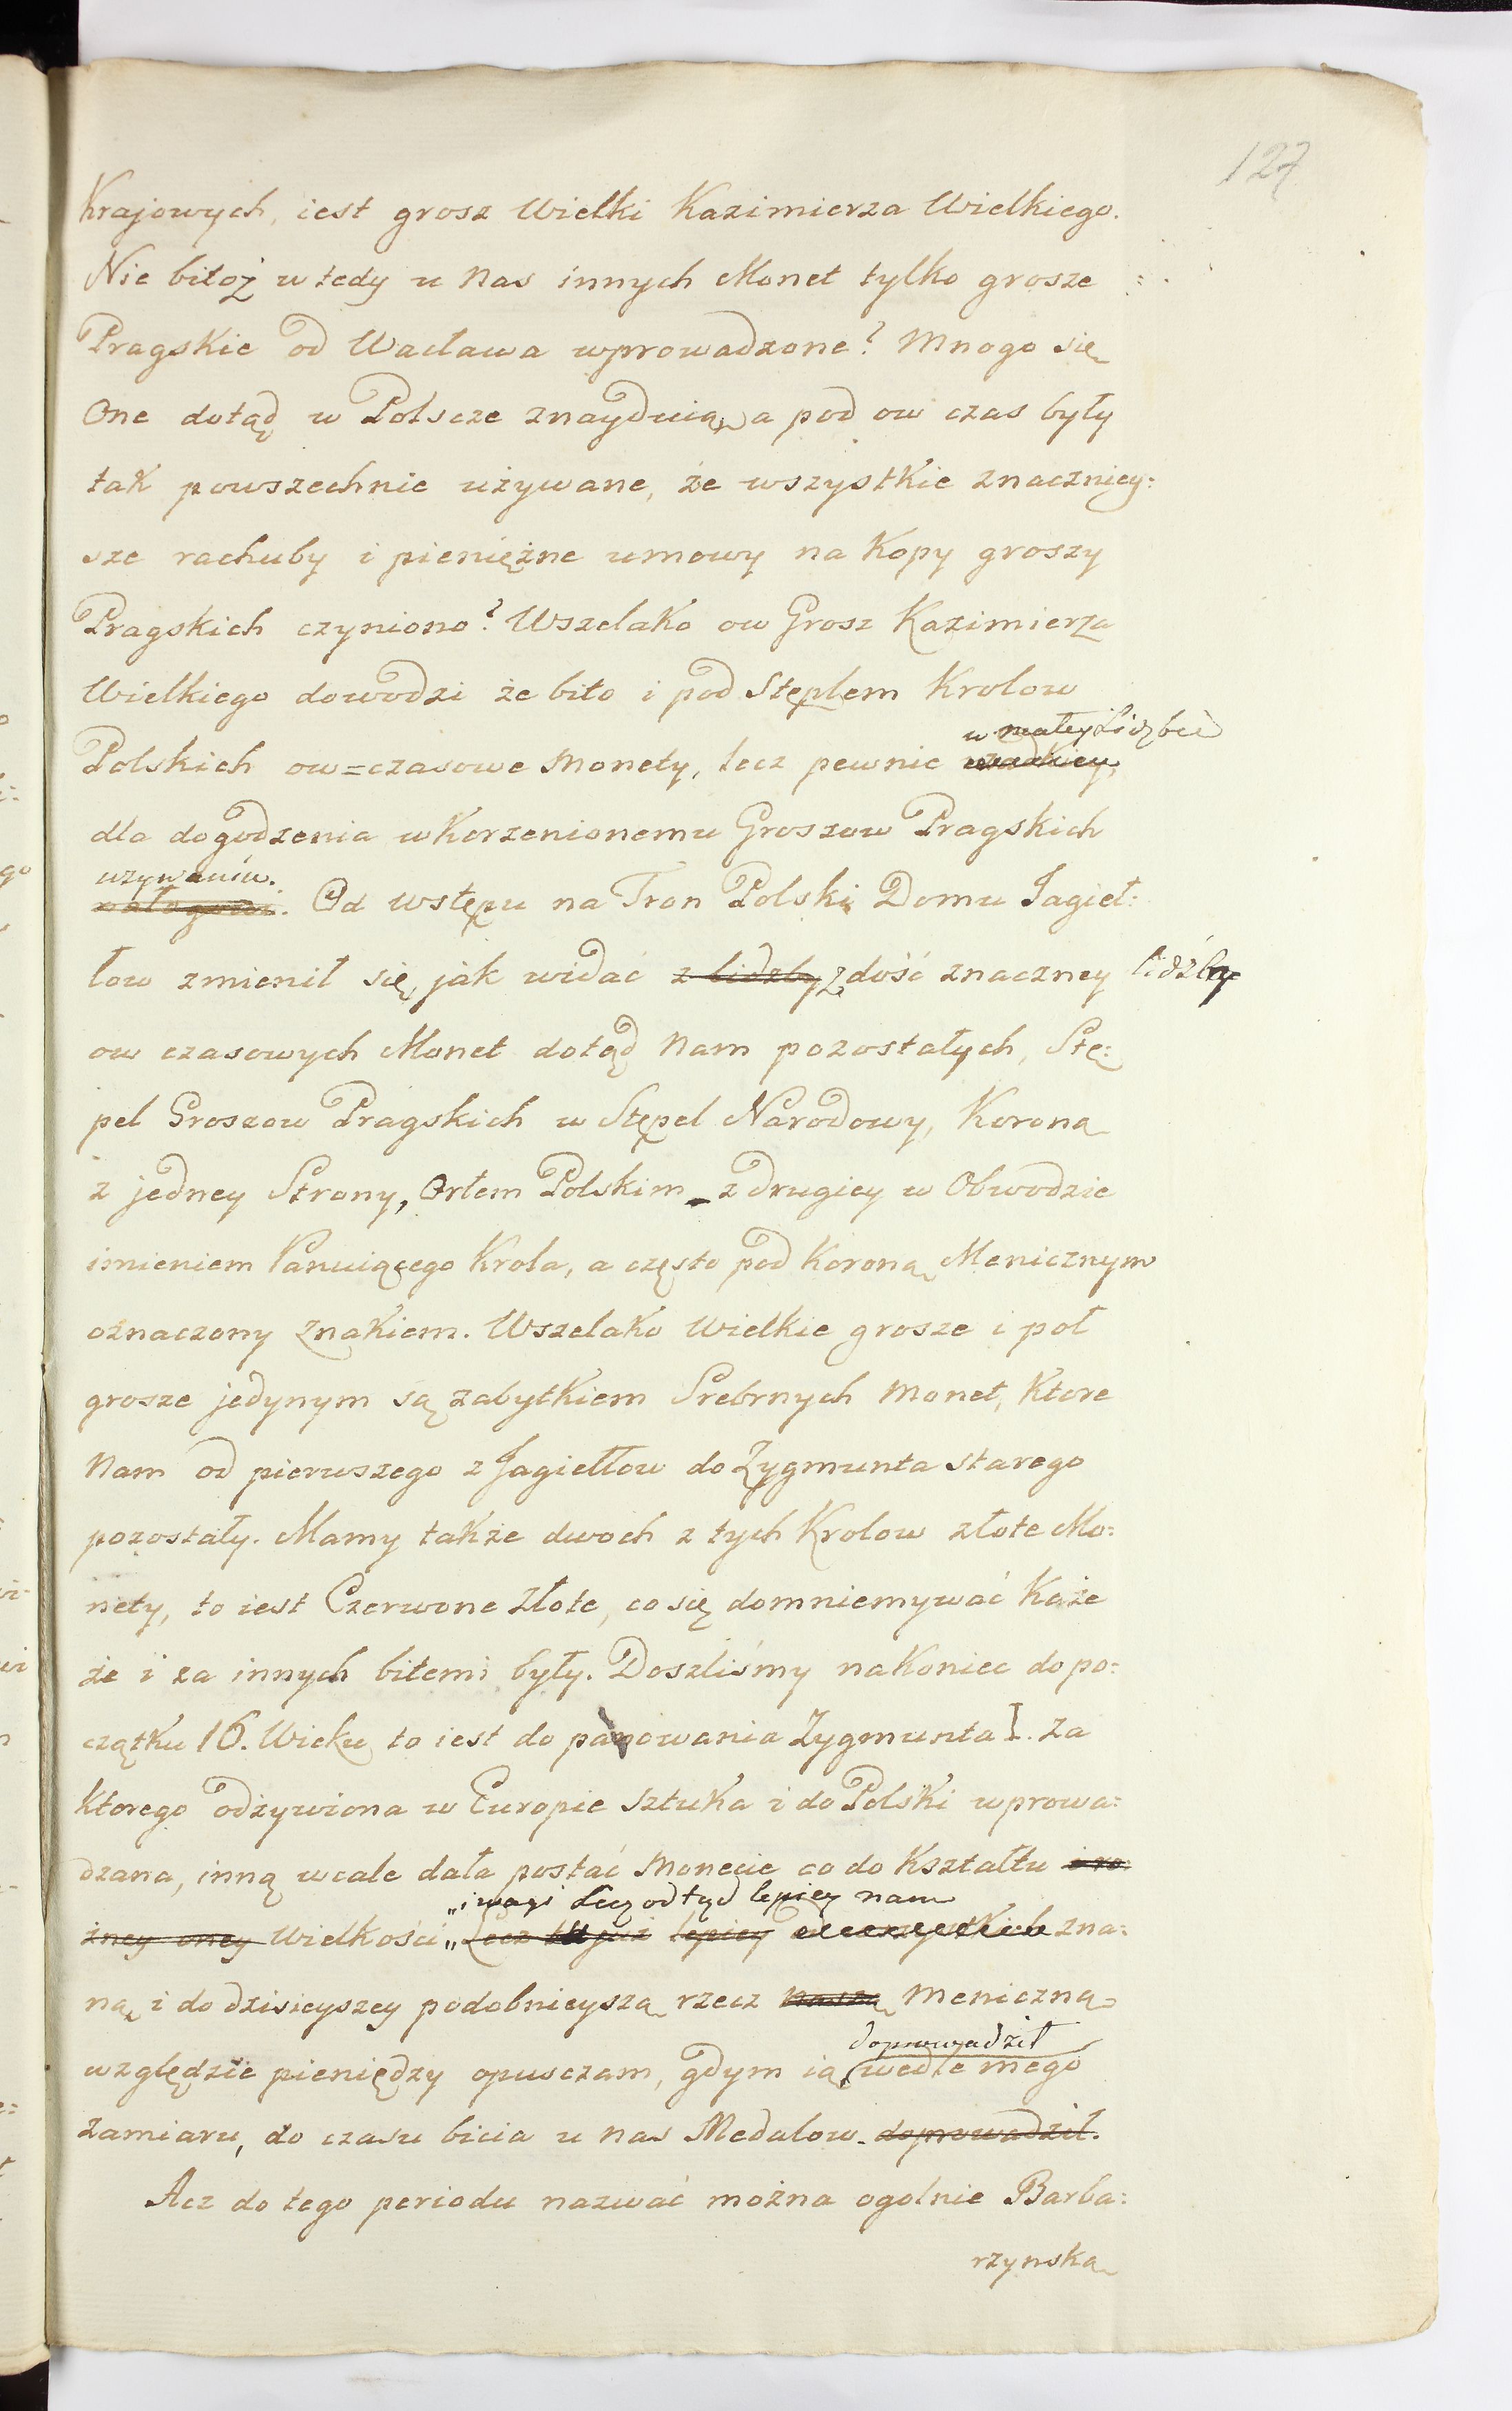 127
Krajowych, iest grosz Wielki Kazimierza Wielkiego.
Nie bitoż w tedy u Nas innych Monet tylko grosze
Pragskie od Wacława wprowadzone? Mnogo się
One dotąd w Polscze znayduią, a pod ow czas były
tak powszechnie używane, że wszystkie znaczniey:
sze rachuby i pieniężne umowy na Kopy groszy
Pragskich czyniono? Wszelako ow Grosz Kazimierza
Wielkiego dowodzi że bito i pod Stęplem Krolow
w małey Lidzbie
Polskich ow=czasowe Monety, lecz pewnie
dla dogodzenia wkorzenionemu Groszow Pragskich
uzywaniu.
nałogowi. Od wstępu na Tron Polski Domu Jagieł:
łow zmienił się, jak widać z lidzby z dość znaczney lidźby
ow czasowych Monet dotąd Nam pozostałych, Stę:
pel Groszow Pragskich w Stępel Narodowy, Koroną
z jedney Strony, Orłem Polskim z drugiey w Obwodzie
imieniem Panuiącego Krola, a często pod Koroną Menicznym
oznaczony Znakiem. Wszelako Wielkie grosze i poł
grosze jedynym są zabytkiem Srebrnych Monet, Ktore
Nam od pierwszego z Jagiełłow do Zygmunta starego
pozostały. Mamy także dwoch z tych Krolow złote Mo:
nety, to iest Czerwone Złote, co się domniemywać Każe
że i za innych bitemi były. Doszliśmy na Koniec do po:
czątku 16. Wieku to iest do panowania Zygmunta I. za
ktorego odżywiona w Europie sztuka i do Polski wprowa:
dzana, inną wcale dała postać Monecie co do Kształtu i ro:
„i wagi Lecz odtąd lepiey nam
żney oney Wielkości „Lecz tu już lepiey zna:
ną i do dzisieyszey podobnieyszą rzecz naszą Meniczną
doprowadził
względzie pieniędzy opusczam, gdym ią wedle mego
zamiaru, do czasu bicia u nas Medalow. doprowadził.
Acz do tego periodu nazwać można ogolnie Barba:
rzynską